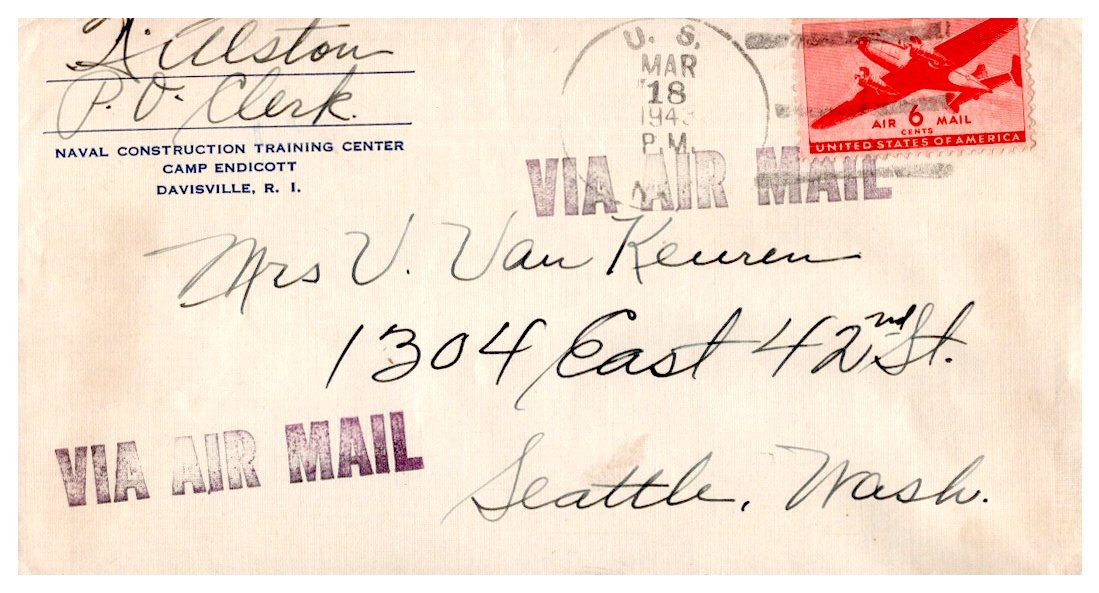 Alston
P.O. Clerk.
NAVAL CONSTRUCTION TRAINING CENTER
CAMP ENDICOTT
DAVISVILLE, R. I.
U. S.
MAR
18
1943
P.M.
AIR 6 MAIL
CENTS
UNITED STATES OF AMERICA
VIA AIR MAIL
Mrs V. Van Keuren
1304 East 42nd St.
Seattle, Wash.
VIA AIR MAIL